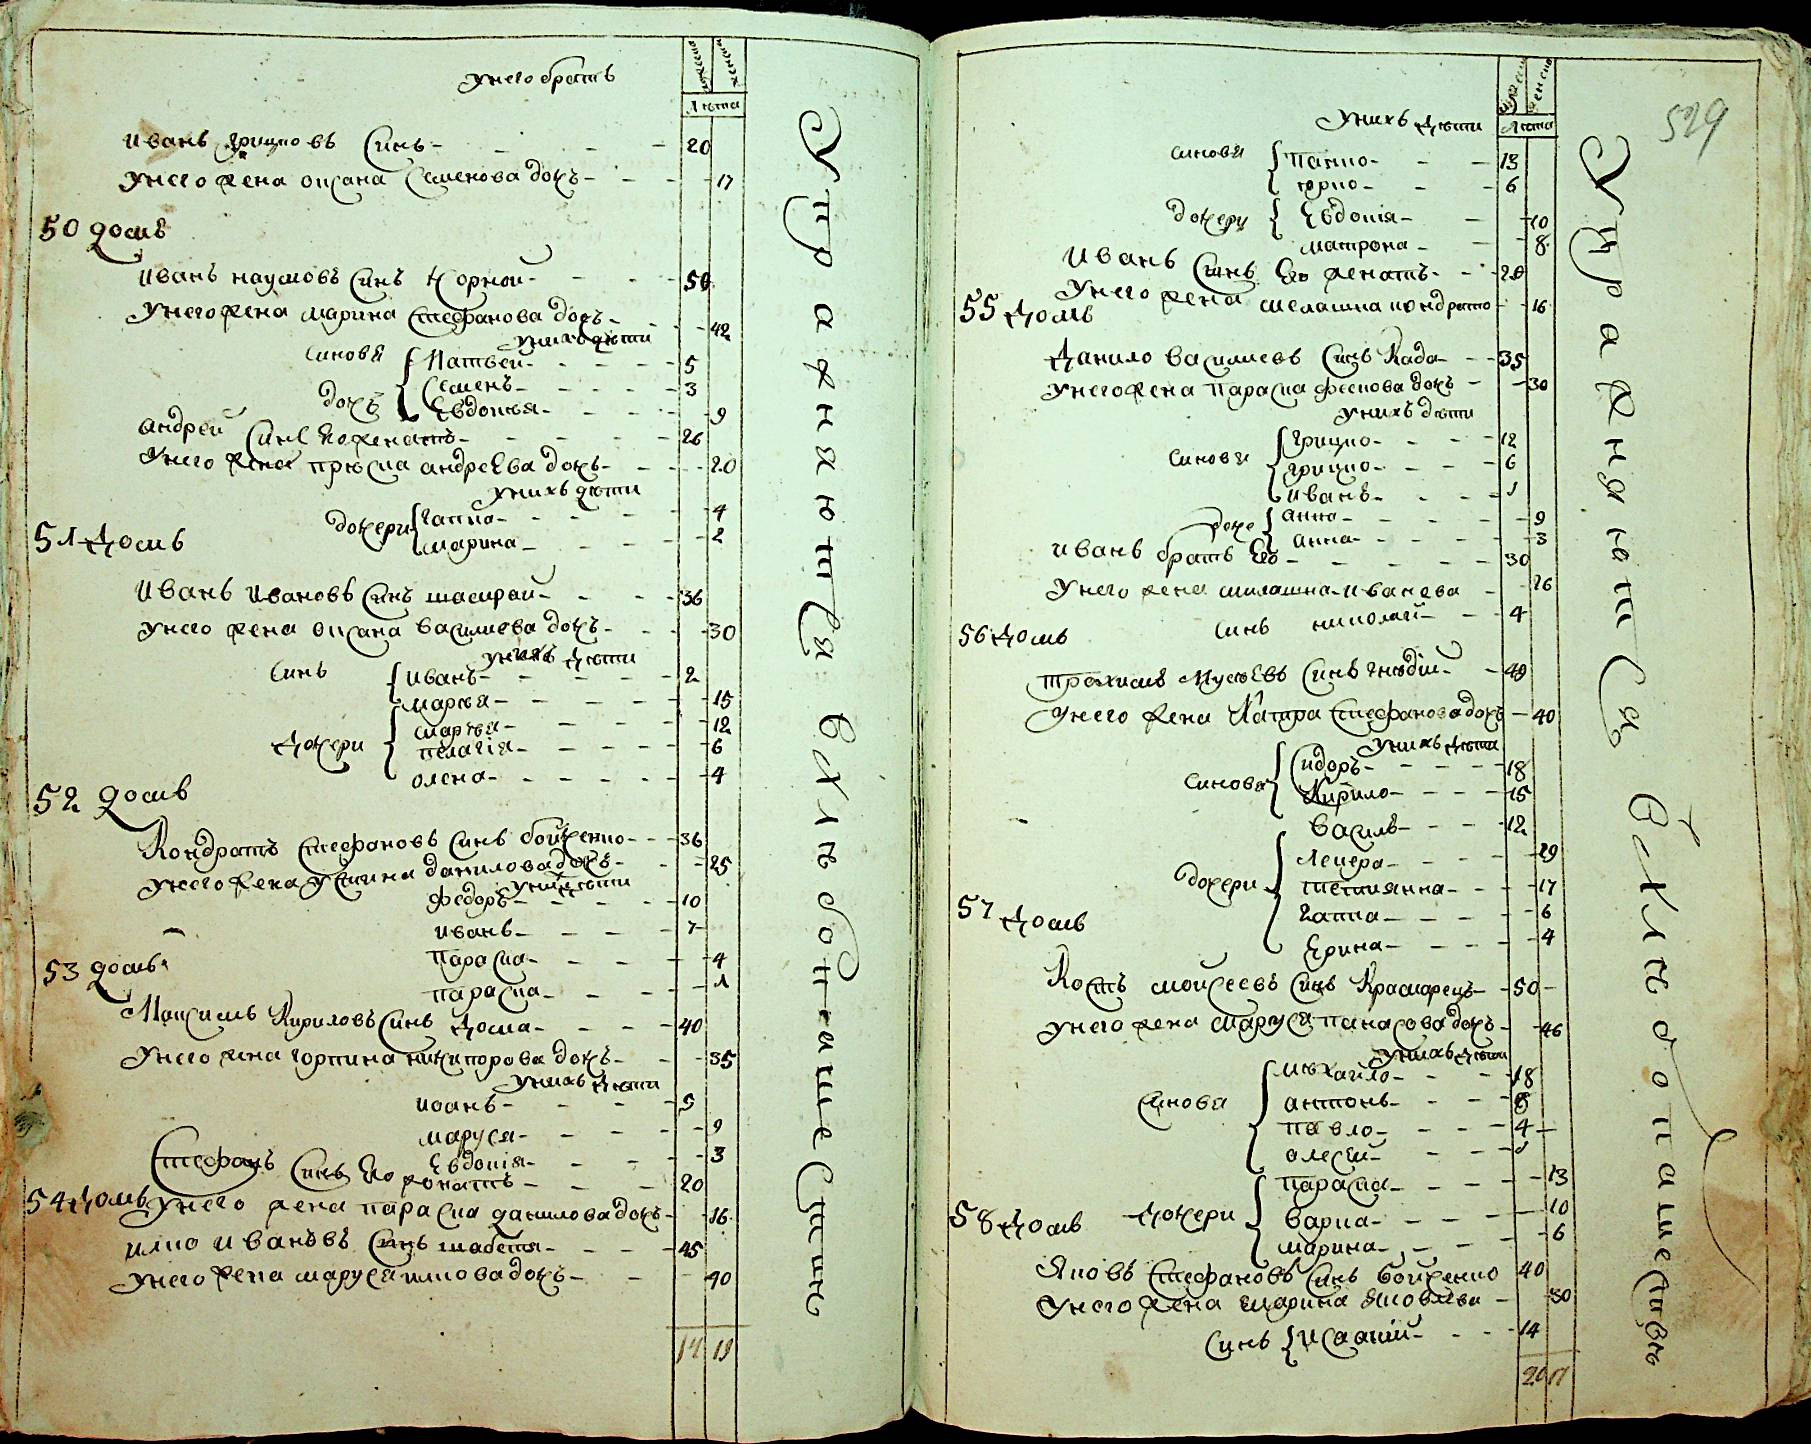 У него братъ
Лѣта
иванъ грицковъ Синъ 20
У него жена оксана Семенова дочъ 17
50 домъ
иванъ наумовъ Синъ Чорной 50
У него жена марина Стефанова дочъ 42
У нихъ дѣти
Синовя Матвей 5
Семенъ 3
дочъ Евдокия 9
андрей Синъ Его женатъ 26
У него жена приска андрѣЕва дочъ 20
У нихъ дѣти
дочери гапка 4
марина 2
51 Домъ
Иванъ Ивановъ Синъ 36
У него жена оксана Василиева дочъ 30
У нихъ Дѣти
Синъ иванъ 2
мария 15
Дочери марфа 12
пелагія 6
олена 4
52 домъ
Кондратъ Стефановъ Синъ бойченко 36
У него жена устина данилова дочъ 25
У них дѣти
Федоръ 10
иванъ 7
параска 4
параска 1
53 домъ
Максимъ Кириловъ Синъ Дома 40
У него жена горпина никипорова дочъ 35
У нихъ Дѣти
иоанъ 5
маруся 9
Евдокія 3
Стефанъ Синъ Его женатъ 20
54 Домъ
У него жена параска данилова дочъ 16
илко ивановъ Синъ шабетя 45
У него жена маруся илкова дочъ 40
14 19
У пр а ж н я ю т Ся в Хлѣбопашествѣ
529
Лѣта
У нихъ Дѣти
Синовя Панко 13
юрко 6
дочери Евдокія 10
матрона 8
Иванъ Синъ Его женатъ 20
У него жена мелашка кондратко 16
55 Домъ
Данило Василиевъ Синъ Када 35
У него жена Параска фескова дочъ 30
У нихъ дѣти
Синовя грицко 12
грицко 6
иванъ 1
дочь анна 9
анна 3
иванъ братъ Его 30
У него жена милашка иванова 26
Синъ николай 4
56 Домъ
Трохимъ МусѣЕвъ Синъ гнѣдій 49
У него жена Катра Стефанова дочъ 40
У нихъ Дѣти
Синовя Сидоръ 18
Кирило 15
василь 12
Дочери 29
Тетиянна 17
гапка 6
Ерина 4
57 Домъ
Костъ мойсеевъ Синъ Крамарецъ 50
У него жена Маруся панасова дочъ 46
У нихъ Дѣти
Синова михайло 18
антонъ 8
павло 4
олесей 1
Дочери параска 13
варка 10
марина 6
58 Домъ
Яковъ Стефановъ Синъ бойченко 40
У него жена марина Яковлева 30
Синъ Исаакій 14
20 17
У пр а ж н я ю т Ся в Хлѣбопашествѣ